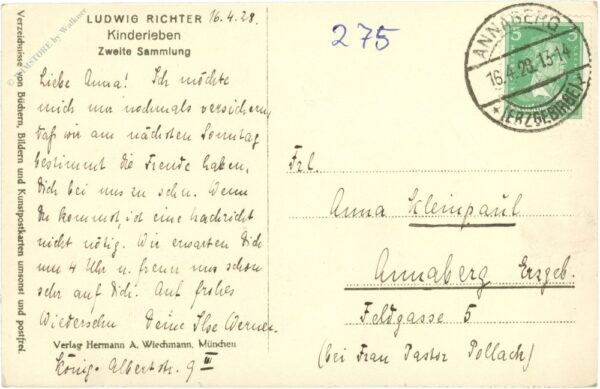 LUDWIG RICHTER
Kinderleben
Zweite Sammlung
16.4.28.
Liebe Anna! Ich möchte
mich nur nochmals versichern,
daß wir am nächsten Sonntag
bestimmt die Freude haben,
Dich bei uns zu sehn. Wenn
Du kommst, ist eine Nachricht
nicht nötig. Wir erwarten Dich
um 4 Uhr u. freun uns schon
sehr auf Dich! Auf frohes
Wiedersehn Deine Ilse Werner.
Verlag Hermann A. Wiechmann, München
König-Albertstr. 9 III
Verzeichnisse von Büchern, Bildern und Kunstpostkarten umsonst und postfrei.
275
ANNABERG
16.4.28.13-14
(ERZGEBIRGE)
5
5
Frl.
Anna Kleinpaul
Annaberg Erzgeb.
Feldgasse 5
(bei Frau Pastor Pollach)